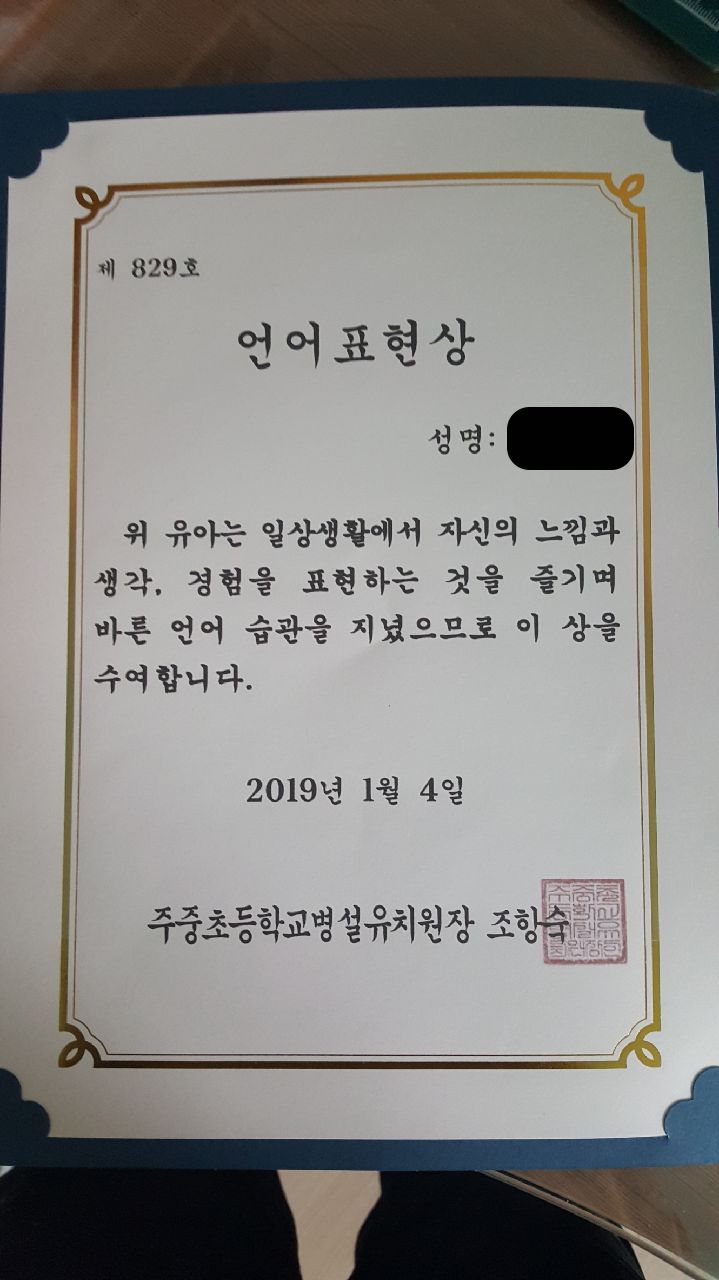 제 829호
언어표현상
성명:
위 유아는 일상생활에서 자신의 느낌과
생각, 경험을 표현하는 것을 즐기며
바른 언어 습관을 지녔으므로 이 상을
수여합니다.
2019년 1월 4일
주중초등학교병설유치원장 조항숙